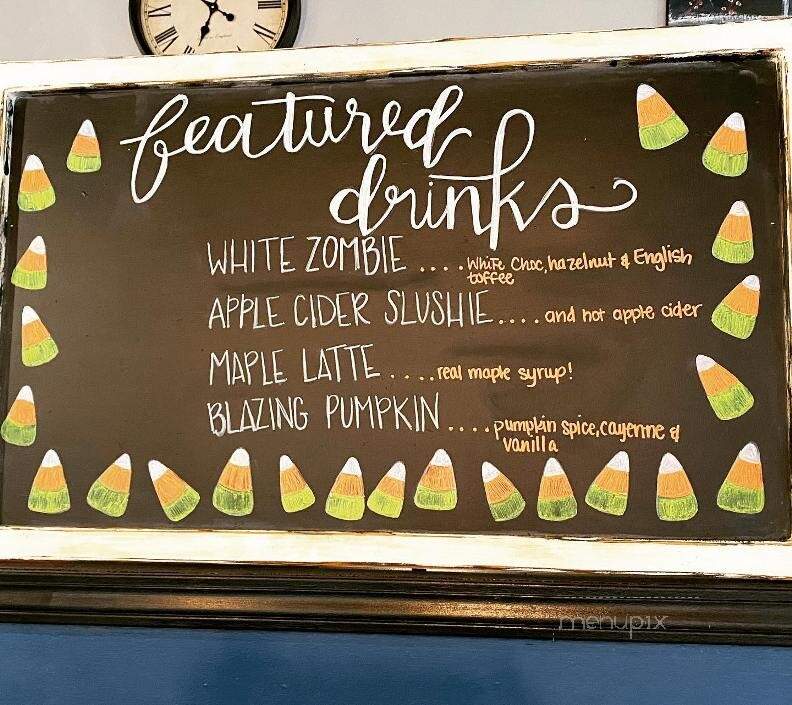 featured
drinks
WHITE ZOMBIE .... White Choc, hazelnut & English
toffee
APPLE CIDER SLUSHIE .... and hot apple cider
MAPLE LATTE .... real maple syrup!
BLAZING PUMPKIN .... pumpkin spice, cayenne &
vanilla
menupix